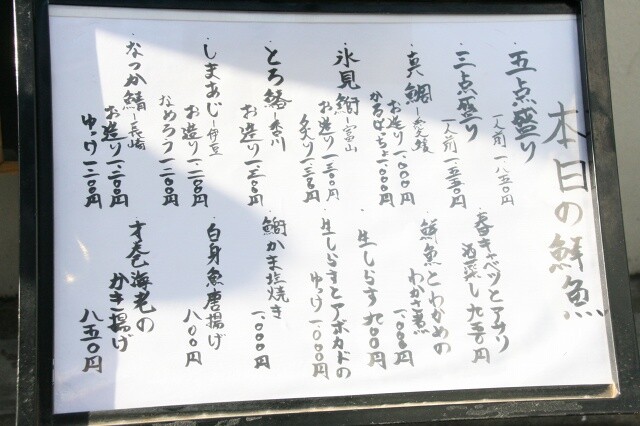 本日の鮮魚
・五点盛り
一人前 一、八五〇円
・三点盛り
一人前 一、三五〇円
・真鯛ー愛媛
お造り 一、〇〇〇円
かるぱっちょ 一、〇〇〇円
・氷見鰤ー富山
お造り 一、三〇〇円
炙り 一、三〇〇円
・とろ鰆ー香川
お造り 一、二〇〇円
・しまあじー伊豆
お造り 一、二〇〇円
なめろう 一、二〇〇円
・なつか鯖ー長崎
お造り 一、二〇〇円
ゆっけ 一、二〇〇円
・春キャベツとアサリ
酒蒸し 九五〇円
・鮮魚とわかめの
わかさ煮 一、〇〇〇円
・生しらす 九〇〇円
・生しらすとアボカドの
ゆっけ 一、〇〇〇円
・鰤かま塩焼き
一、〇〇〇円
・白身魚唐揚げ
八〇〇円
・才巻海老の
かき揚げ
八五〇円